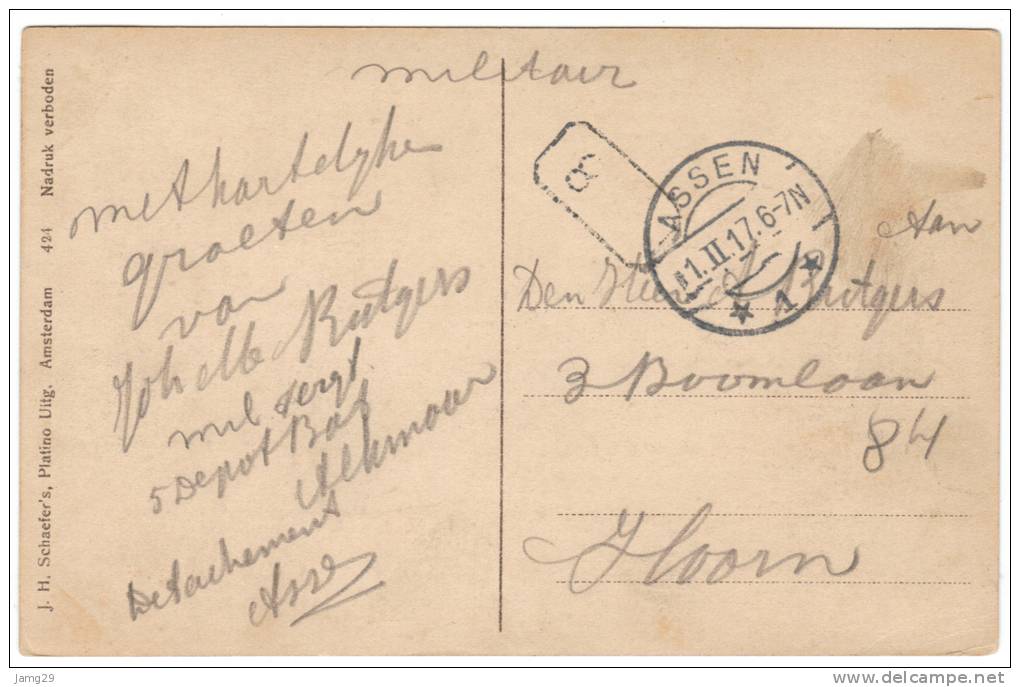 militair
met hartelyke
groeten
van
Joh Rutgers
mil sergt
5 Depot Bat
Alkmaar
Detachement
Assen
J. H. Schaefer's, Platino Uitg. Amsterdam 424 Nadruk verboden
8
ASSEN
11.II.17.6-7N
1
Aan
Den Heer Rutgers
3 Boomlaan
84
Hoorn
Jamg29
www.delcampe.net